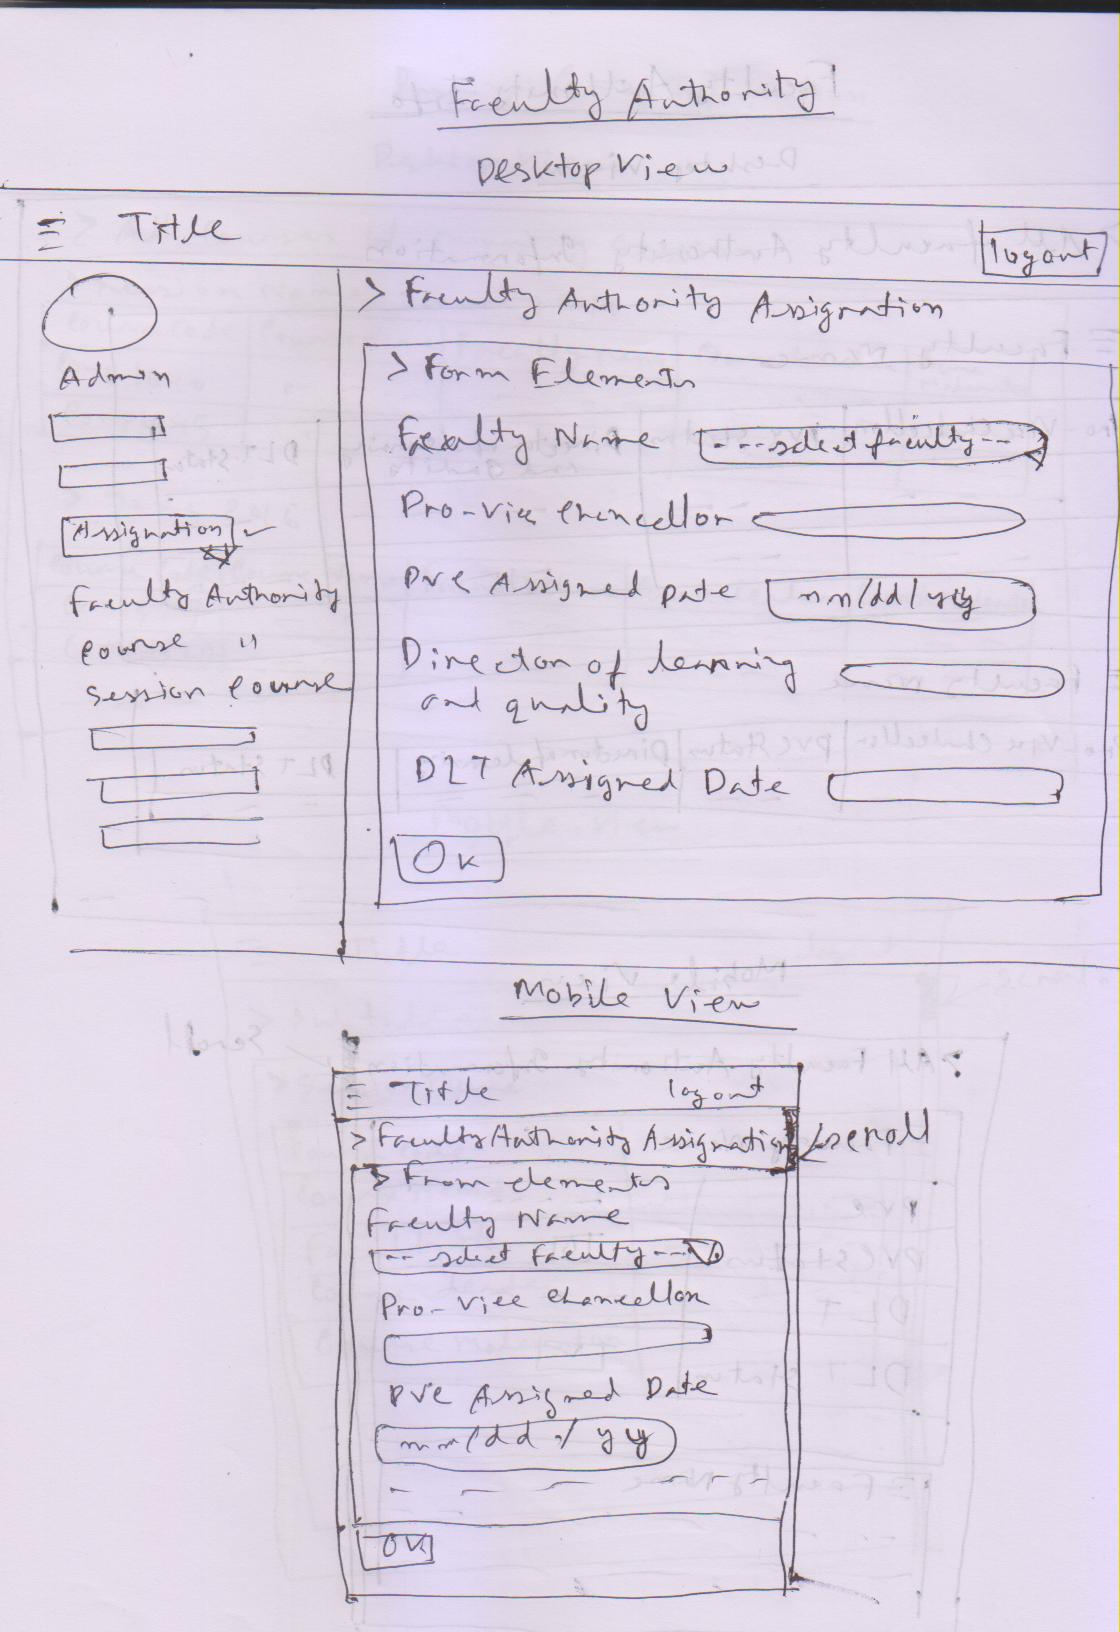 Faculty Authority
Desktop View
Title
logout
Admin
Assignation
Faculty Authority
course "
session course
> Faculty Authority Assignation
> Form Elements
Faculty Name ---select faculty---
Pro-Vice chancellor
PVC Assigned Date mm/dd/yy
Director of learning
and quality
DLT Assigned Date
OK
Mobile View
Title logout
> Faculty Authority Assignation
scroll
> From elements
Faculty Name
-- select Faculty ---
Pro-Vice chancellor
PVC Assigned Date
mm/dd/yy
OK